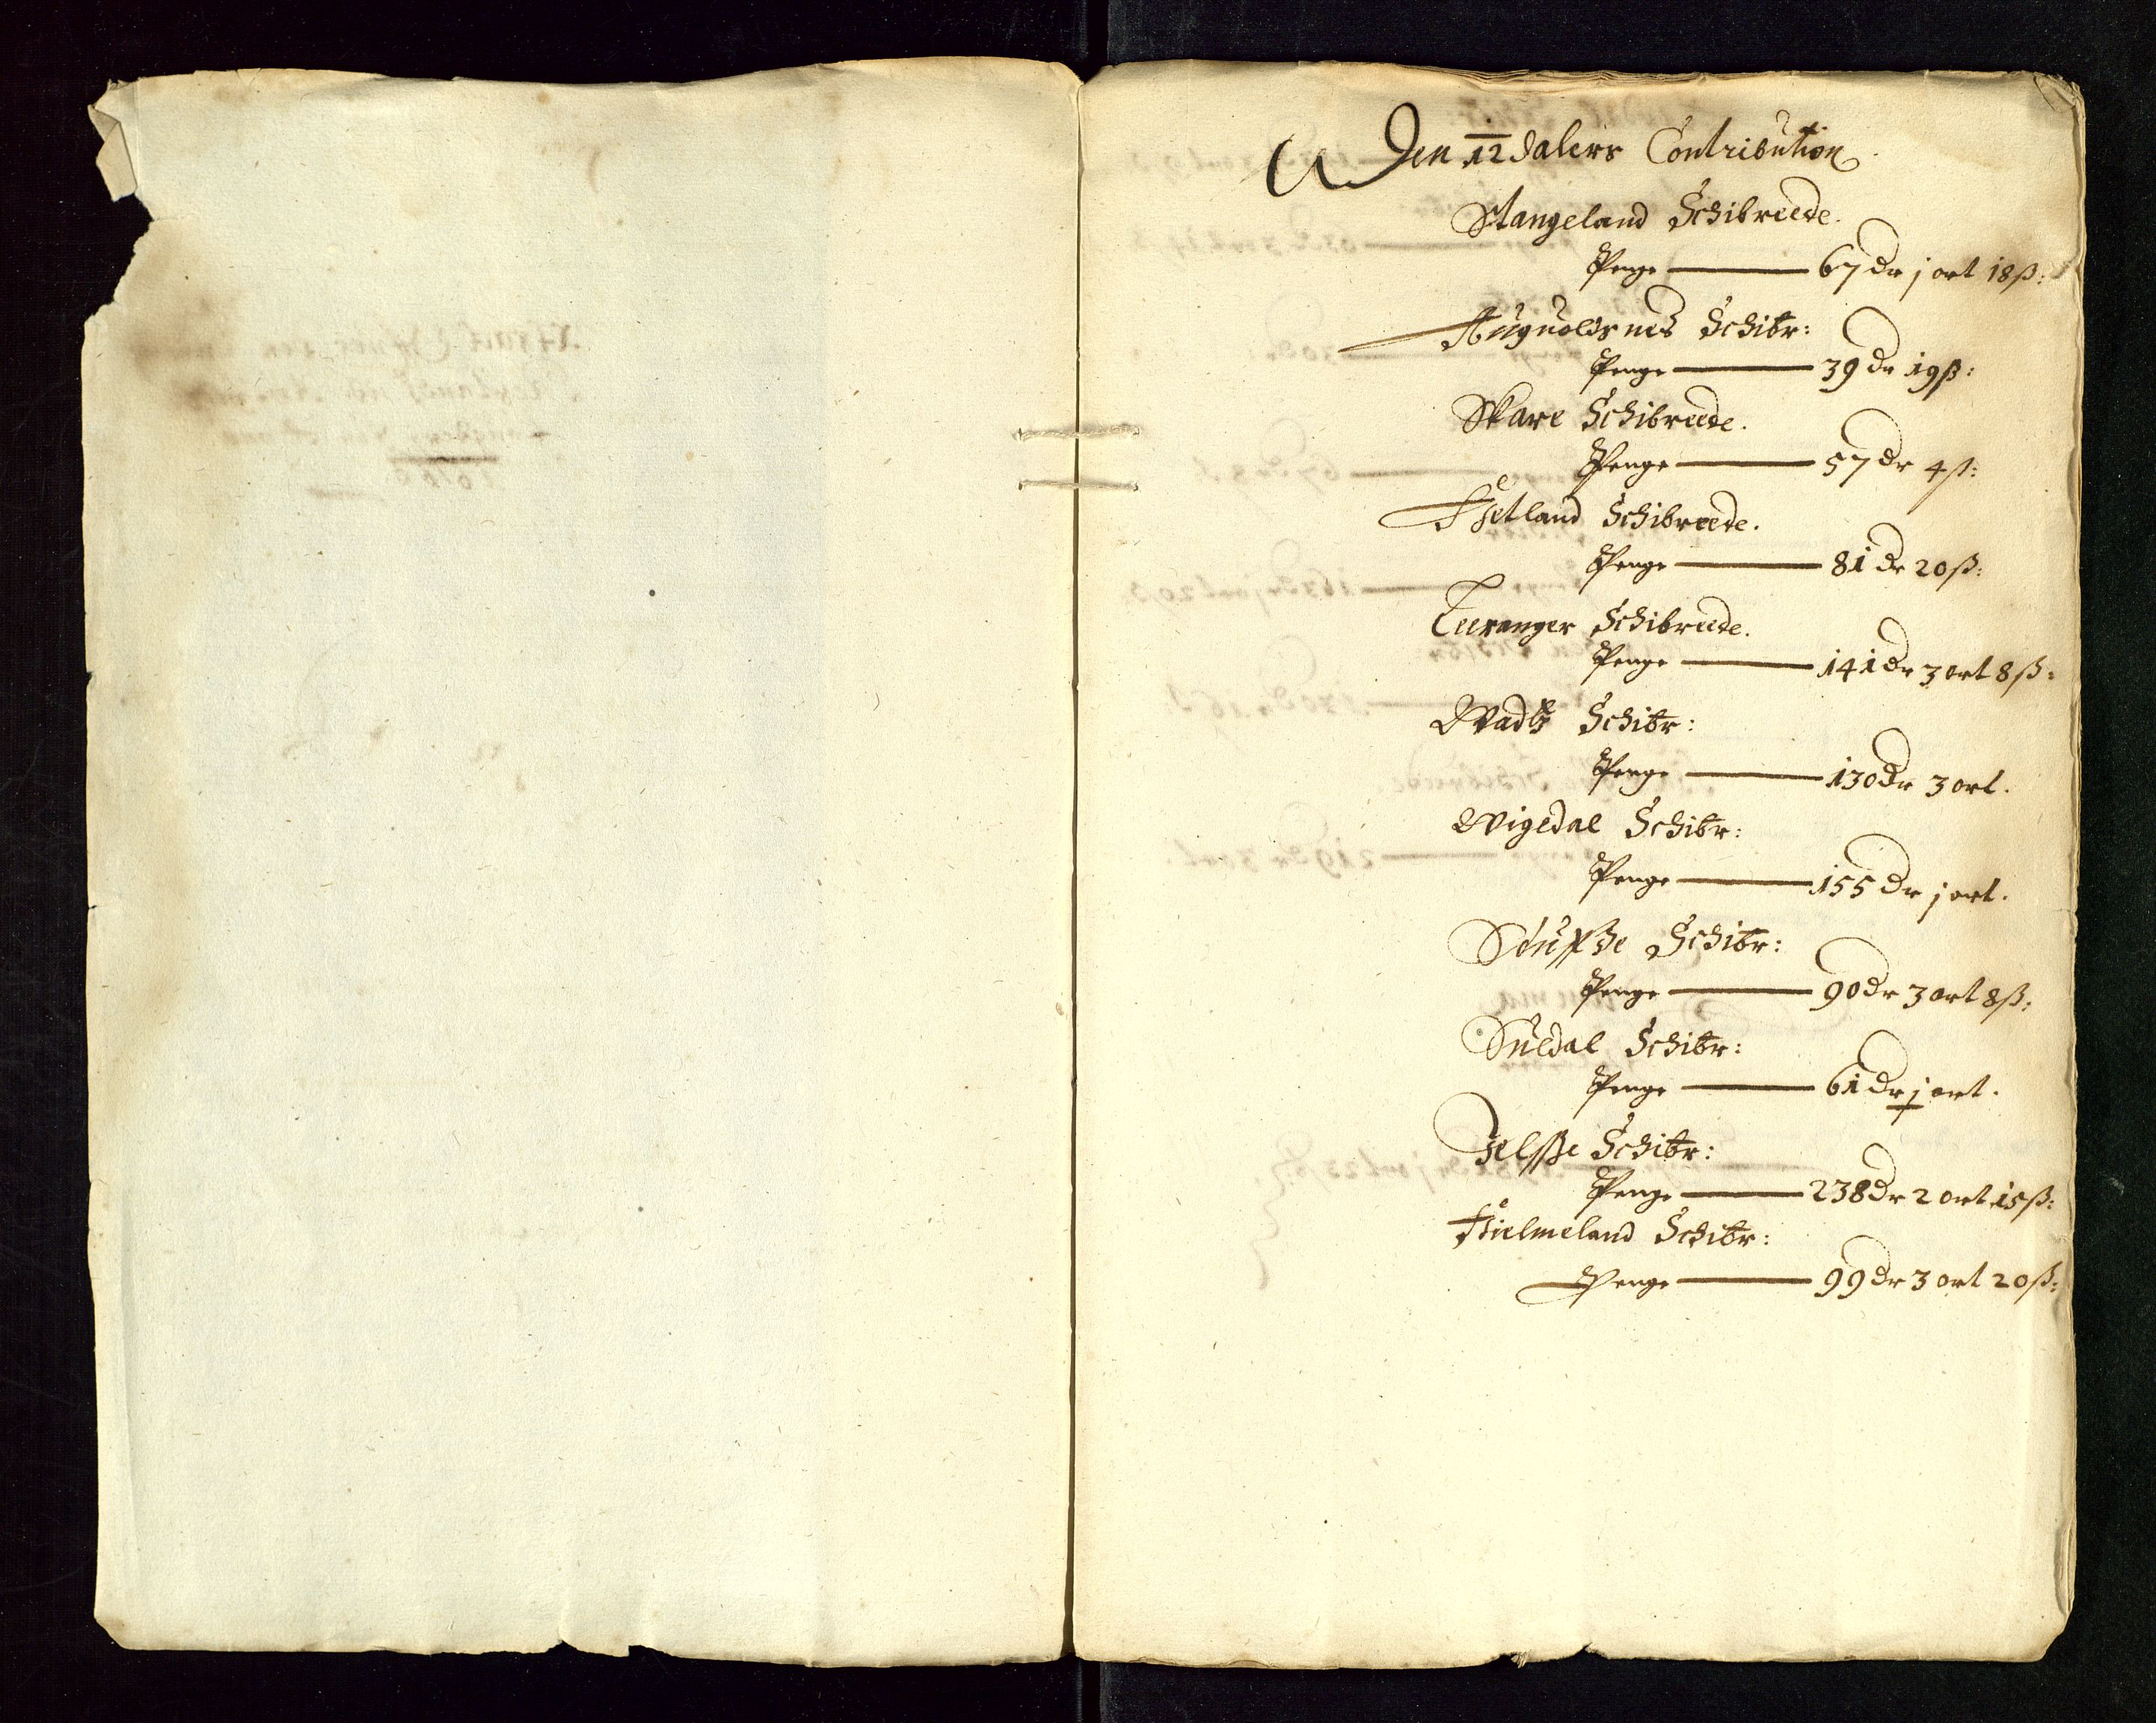 Den 12 dalers Contribution
Stangeland Schibreede.
Penge — 67 dr j ort 18 ß:
Auguoldsnes Schibr:
Penge — 39 dr 19 ß:
Skare Schibreede.
Penge — 57 dr 4 ß:
Hetland Schibreede.
Penge — 81 dr 20 ß:
Leeranger Schibreede.
Penge — 141 dr 3 ort 8 ß:
Wadtz Schibr:
Penge — 130 dr 3 ort.
Wigedal Schibr:
Penge — 155 dr j ort.
Schibr:
Penge — 90 dr 3 ort 8 ß:
Suldal Schibr:
Penge — 61 dr j ort.
Jelsße Schibr:
Penge — 238 dr 2 ort 15 ß:
Hielmeland Schibr:
Penge — 99 dr 3 ort 20 ß: